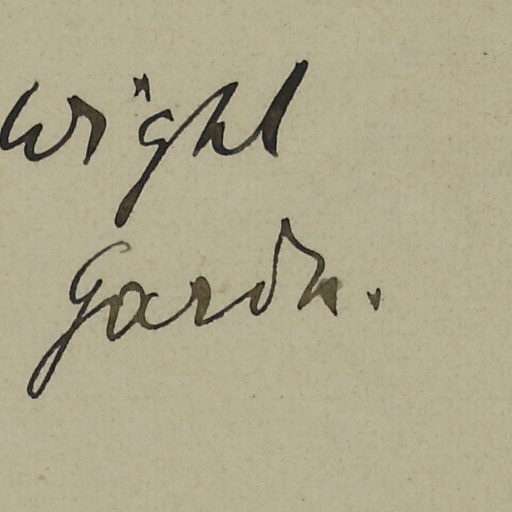 Wight
Gardn.